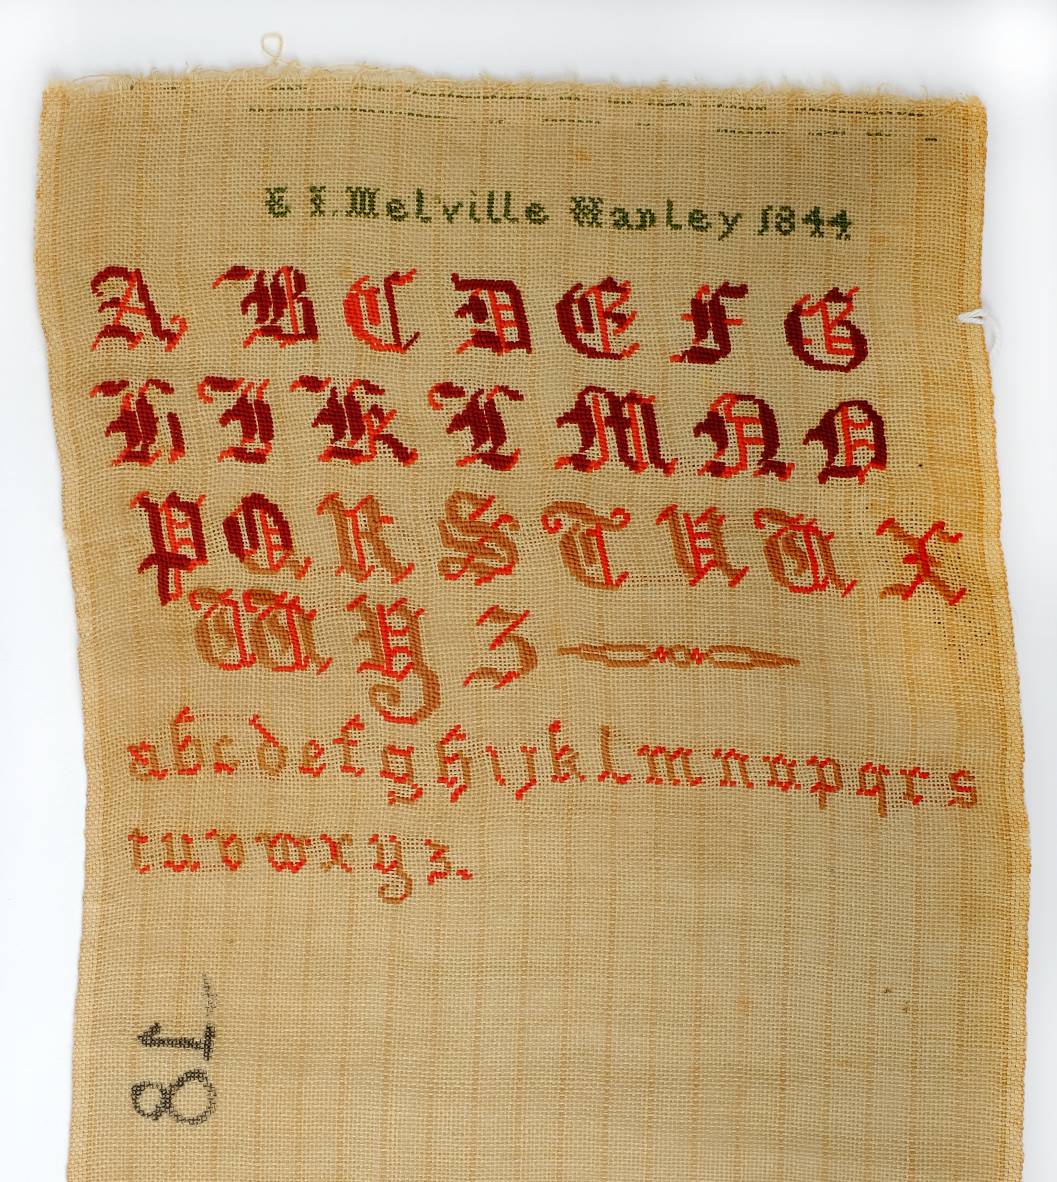 E I. Melville Hanley 1844
A B C D E F G
H I K L M N O
P Q R S T U V X
W Y Z
a b c d e f g h i j k l m n o p q r s
t u v w x y z.
18